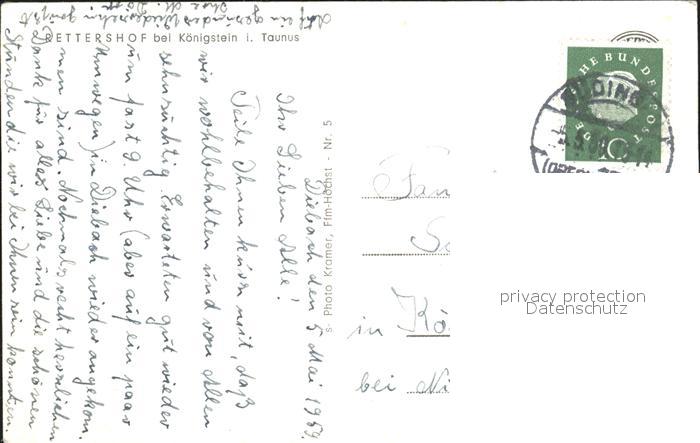 RETTERSHOF bei Königstein i. Taunus
Diebach den 5 Mai 1959.
Ihr Lieben Alle!
Teile Ihnen kurz mit, daß
wir wohlbehalten und von Allen
sehnsüchtig Erwarteten gut wieder
um fast 9 Uhr (aber auf ein paar
Umwegen) in Diebach wieder angekom-
men sind. Nochmals recht herzlichen
Dank für alles Liebe und die schönen
Stunden die wir bei Ihnen sein konnten.
Auf ein gesundes Wiedersehn grüßt
s- Photo Kramer, Ffm-Höchst - Nr. 5
DEUTSCHE BUNDESPOST
10
BÜDINGEN
Fam
in Kö
bei Ni
privacy protection
Datenschutz